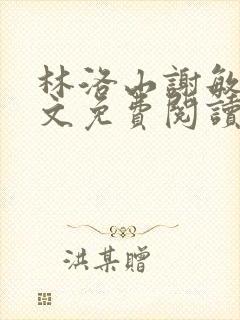 林洛山謝敏
文免費閱讀
洪某贈